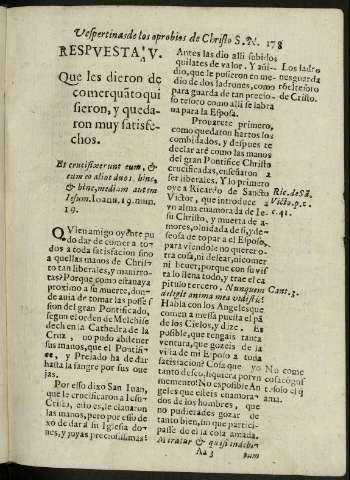 Vespertinas de los oprobios de Christo S. N. 178
RESPVESTA V.
Que les dieron de
comer quãto qui
sieron, y queda-
ron muy satisfe-
chos.
Et crucifixerunt eum, &
cum eo alios duos, hinc,
& hinc, medium autem
Iesum. Ioan. 19. num.
19.
QVien amigo oyente pu
do dar de comer a to-
dos a toda satisfacion sino
aquellas manos de Chris-
to tan liberales, y manirro-
tas? Porque como estaua ya
proximo a su muerte, don-
de auia de tomar la possess
sion del gran Pontificado,
segun el orden de Melchise
dech en la Cathedra de la
Cruz, no pudo abstener
sus manos, que el Pontifi-
ce, y Prelado ha de dar
hasta la sangre por sus oue
jas.
Por esso dixo San Iuan,
que le crucificaron a Iesu-
Cristo, esto es, le clauaron
las manos, pero por esso de
xo de dar a su Iglesia do-
nes, y joyas preciosissimas:
Antes las dio alli subidos
quilates de valor. Y añi-
dio, que le pusieron en me-
dio de dos ladrones, como
para guarda de tan precio-
so tesoro como alli se labra
ua para la Esposa.
Prouarete primero,
como quedaron hartos los
combidados, y despues te
declararé como las manos
del gran Pontifice Christo
crucificadas, enseñaron a
ser liberales. Y lo primero
oye a Ricardo de Sancto
Victor, que introduce a
vna alma enamorada de Ie-
su Christo, y muerta de a-
mores, oluidada de si, y de-
seosa de topar a el Esposo,
para viendole no querer o-
tra cosa, ni desear, ni comer
ni beuer; porque con su vis
ta lo llena todo, y trae el ca
pitulo tercero. Nunquem
diligit anima mea vidistis?
Habla con los Angeles que
comen a messa puesta el pã
de los Cielos, y dize. Es
posible, que tengais tanta
ventura, que gozeis de la
vista de mi Esposo a toda
satisfacion? Cosa que yo
tanto deseo, si quiera por vn
memento? No es posible An
geles que esteis enamora-
dos de los hombres, que
no pudierades gozar de
tanto bien, sin que partici-
passe de el la cama amada.
Miratur & quasi indig-
Aa 3 num
Los ladro
nes guarda
rõ el tesoro
de Cristo.
Ric. de Sã.
Victo. p. 2.
c. 41.
Cant. 3.
No come
cosa cõ gus
to solo el q
ama.